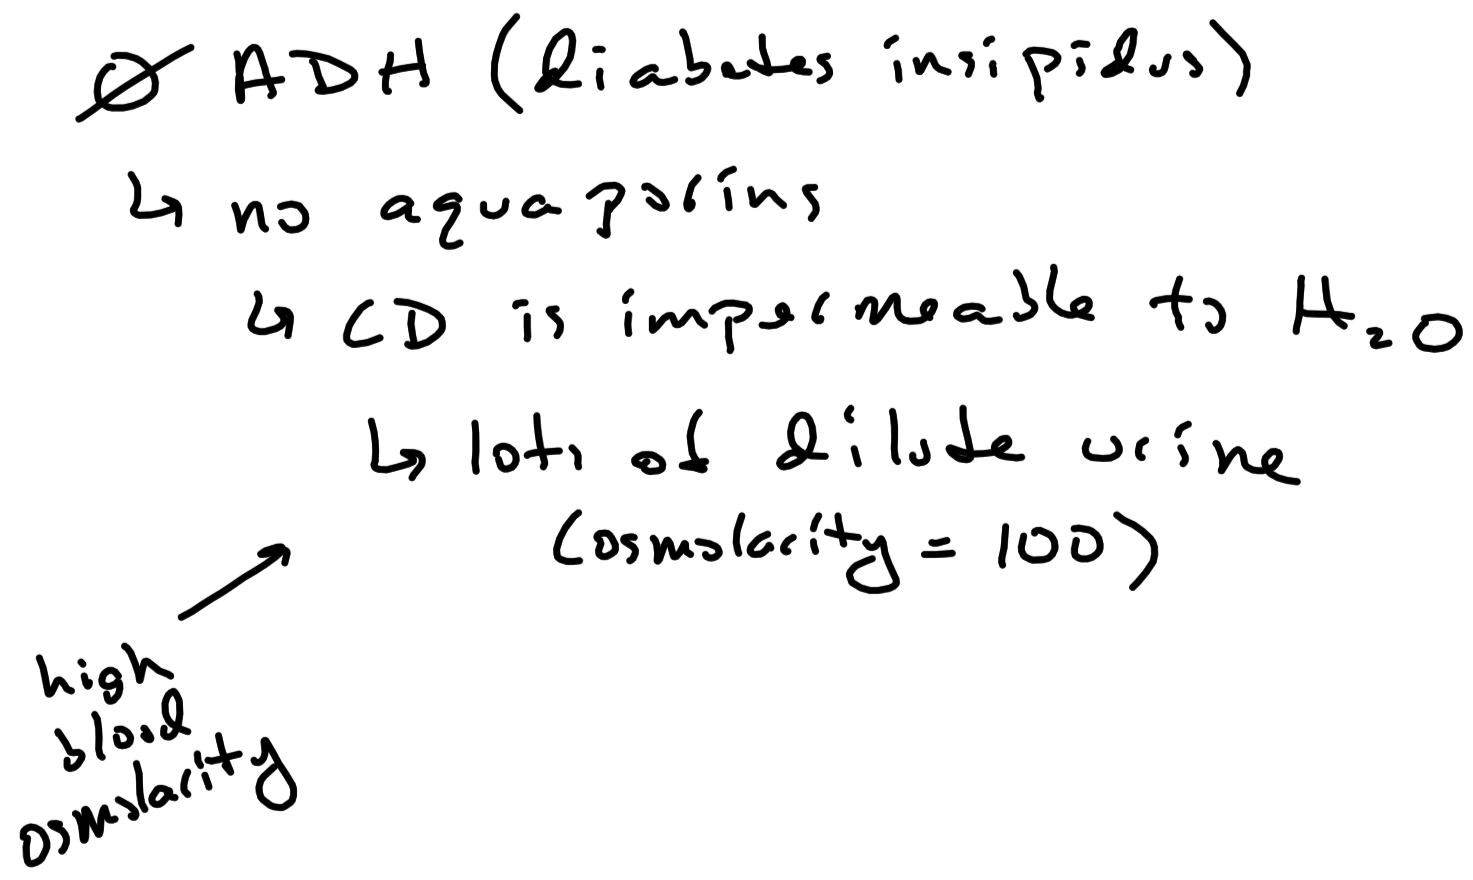 Ø ADH (diabetes insipidus)
↳ no aquaporins
↳ CD is impermeable to H₂O
↳ lots of dilute urine
(osmolarity = 100)
high
blood
osmolarity